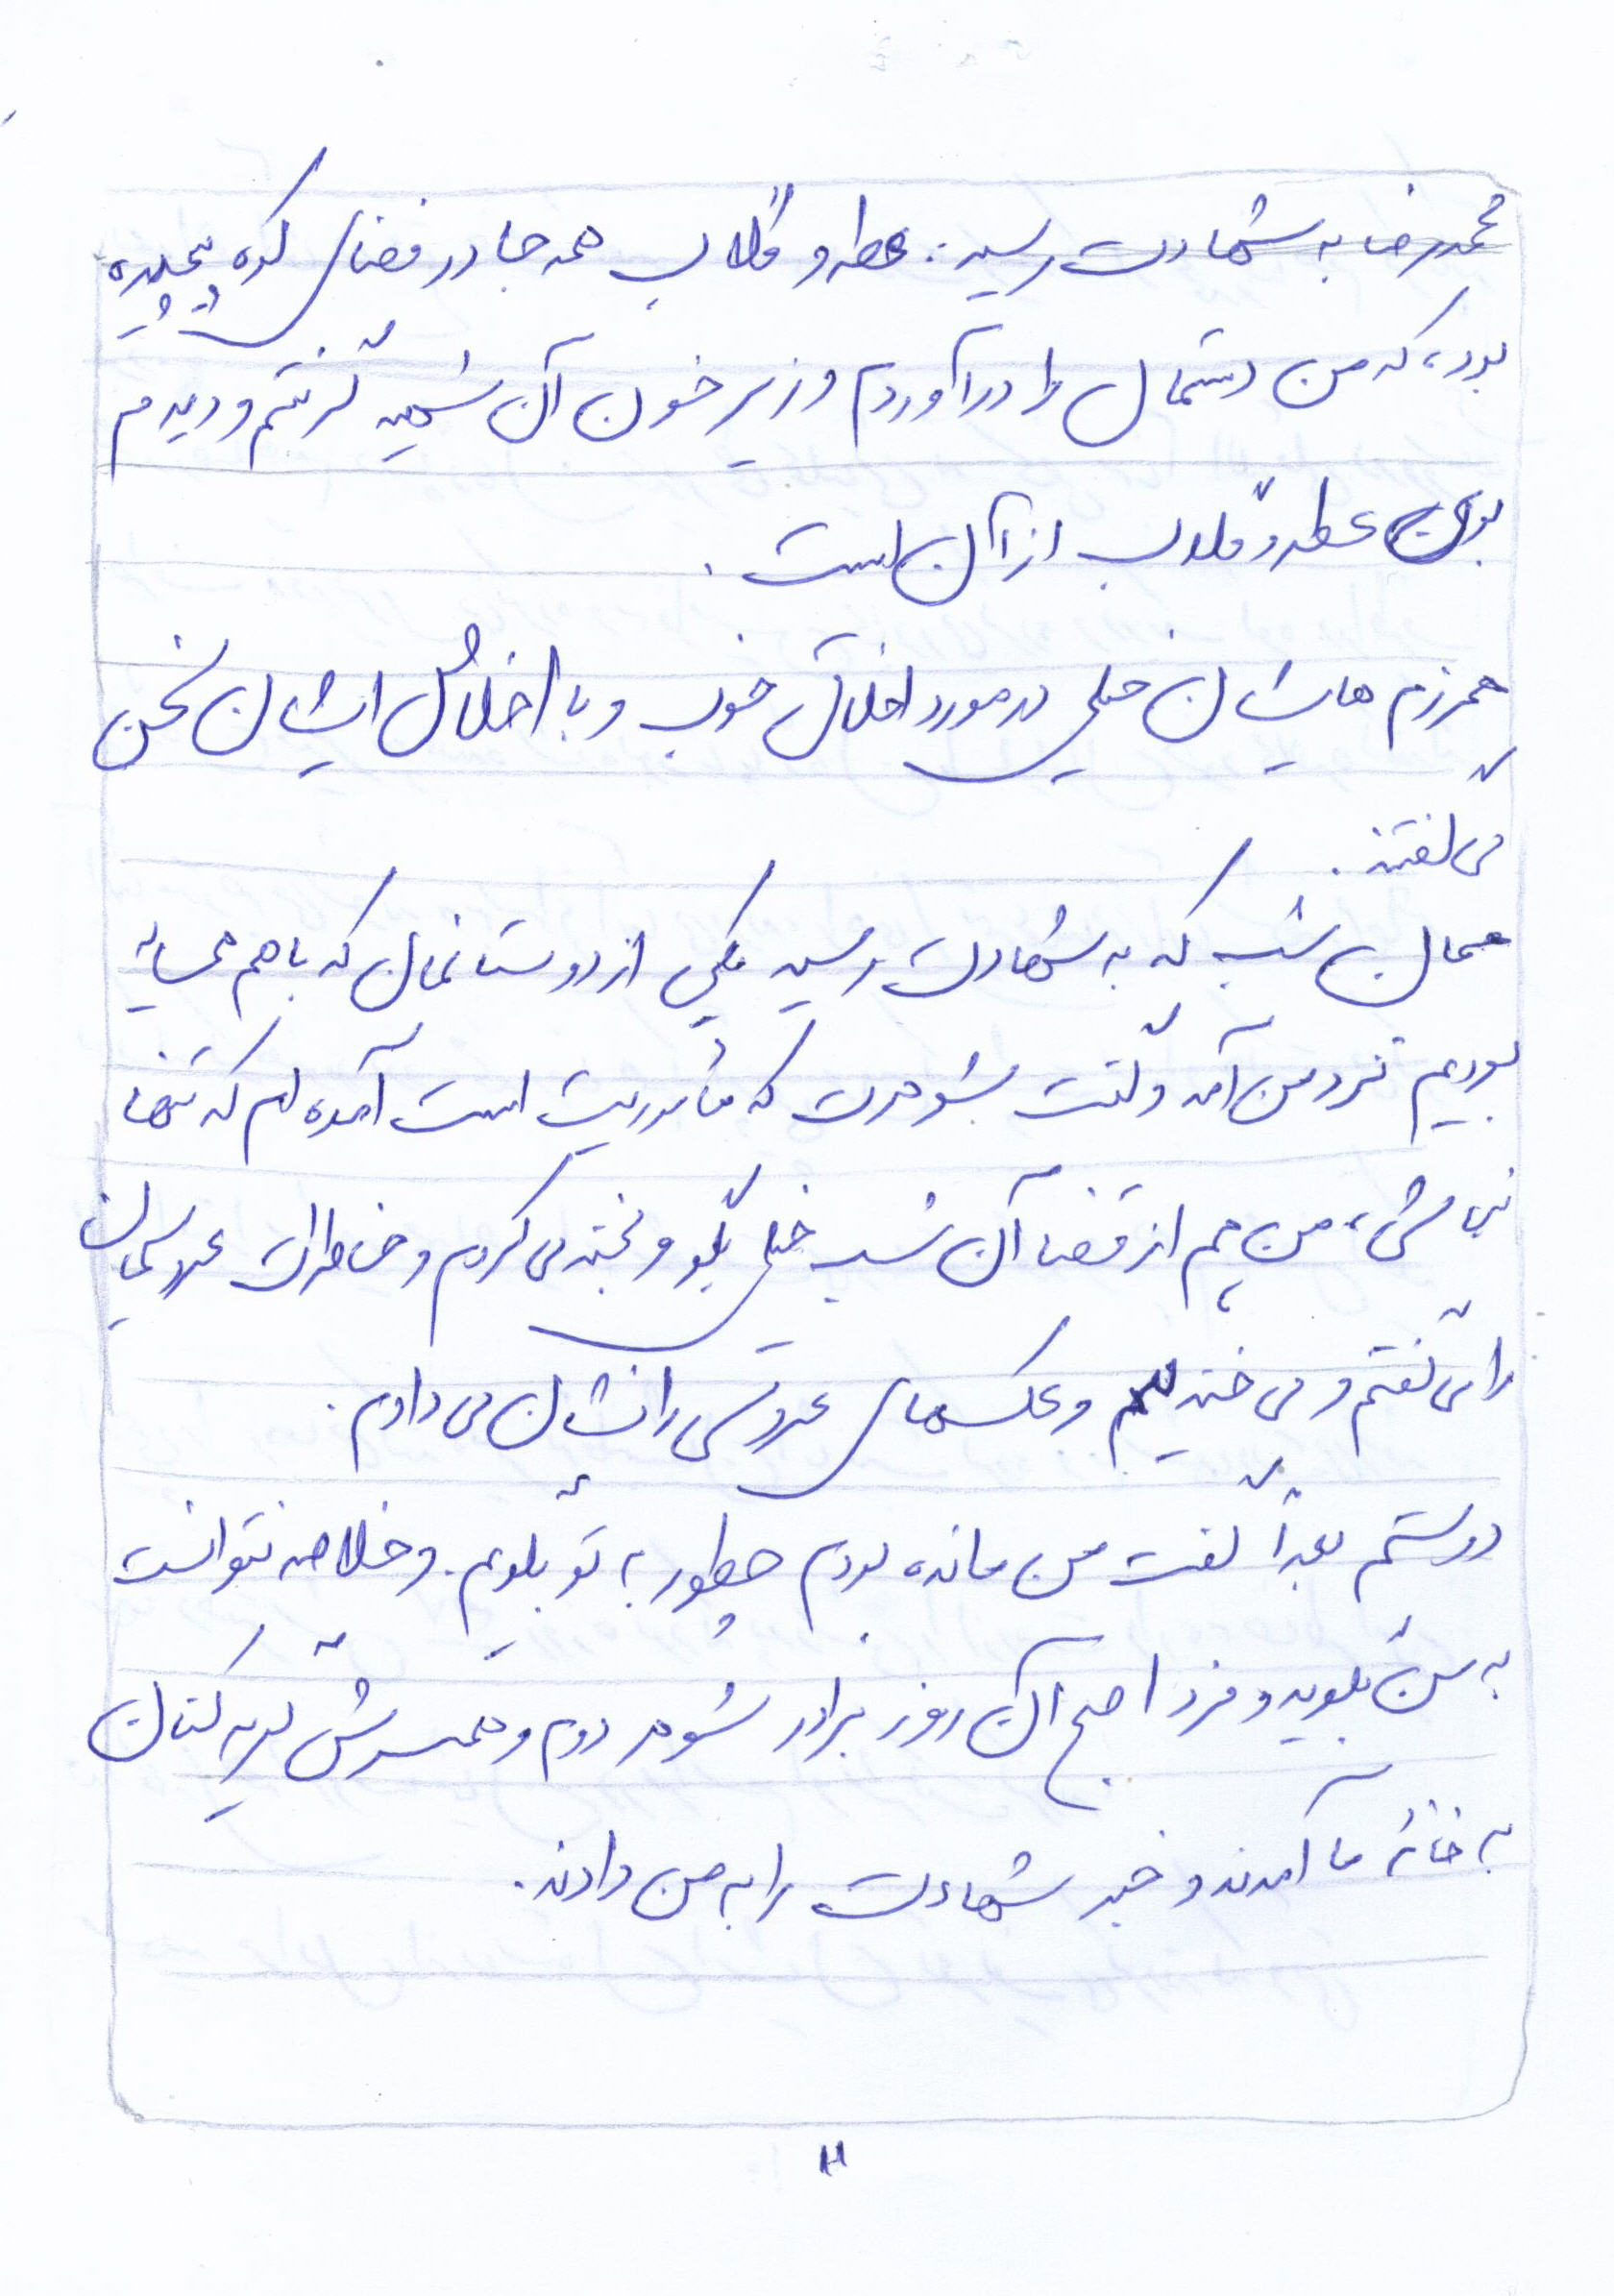 محمدرضا به شهادت رسید. عطر و گلاب همه جا در فضای کوه پیچیده
بود، که من دستمال را درآوردم و زیر خون آن شهید گرفتم و دیدم
بوی عطر و گلاب از آن است.
همرزم هایشان خیلی در مورد اخلاق خوب و با اخلاص ایشان سخن
می گفتند.
همان شب که به شهادت رسید یکی از دوستانمان که با هم همسایه
بودیم نزد من آمد و گفت شوهرت که مأموریت است آمده ام که تنها
نباشی، من هم از قضا آن شب خیلی بگو و بخند می کردم و خاطرات عروسیمان
را می گفتم و می خندیدیم و عکسهای عروسی را نشان می دادم.
دوستم بعداً گفت من مانده بودم چطور به تو بگویم. و خلاصه نتوانست
به من بگوید و فردا صبح آن روز برادر شوهر دوم و همسرش گریه کنان
به خانۀ ما آمدند و خبر شهادت را به من دادند.
۱۱